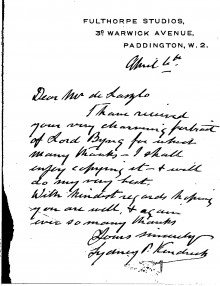 FULTHORPE STUDIOS,
3ᴬ WARWICK AVENUE,
PADDINGTON, W. 2.
April 6th
Dear Mr de Laszlo
I have received
your very charming portrait
of Lord Byng for which
many thanks – I shall
enjoy copying it – & will
do my very best.
With kindest regards hoping
you are well, & again
ever so many thanks
Yours sincerely
Sydney P. Kendrick